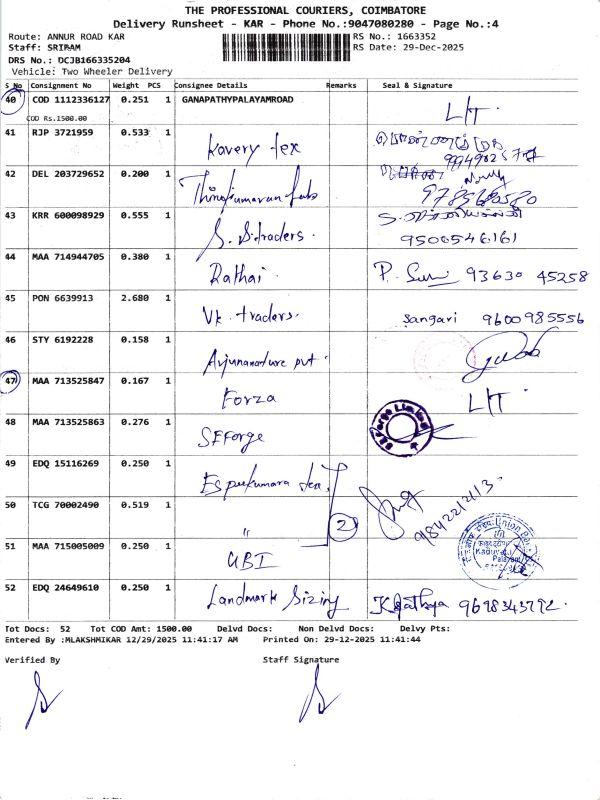 THE PROFESSIONAL COURIERS, COIMBATORE
Delivery Runsheet - KAR - Phone No.:9047080280 - Page No.:4
Route: ANNUR ROAD KAR RS No.: 1663352
Staff: SRIRAM RS Date: 29-Dec-2025
DRS No.: DCJB166335204
Vehicle: Two Wheeler Delivery
S No Consignment No Weight PCS Consignee Details Remarks Seal & Signature
40 COD 1112336127 0.251 1 GANAPATHYPALAYAMROAD L/T
COD Rs.1500.00
41 RJP 3721959 0.533 1 Kavery tex
42 DEL 203729652 0.200 1
43 KRR 600098929 0.555 1 S. S. traders. 9500546161
44 MAA 714944705 0.380 1 Rathai. 93630 45258
45 PON 6639913 2.680 1 Vk. traders. Sangari 9600985556
46 STY 6192228 0.158 1
47 MAA 713525847 0.167 1 Forza L/T
48 MAA 713525863 0.276 1 SFForge
49 EDQ 15116269 0.250 1
50 TCG 70002490 0.519 1 " 2
51 MAA 715005009 0.250 1 UBI
52 EDQ 24649610 0.250 1 Landmark Sizing
Tot Docs: 52 Tot COD Amt: 1500.00 Delvd Docs: Non Delvd Docs: Delvy Pts:
Entered By :MLAKSHMIKAR 12/29/2025 11:41:17 AM Printed On: 29-12-2025 11:41:44
Verified By Staff Signature